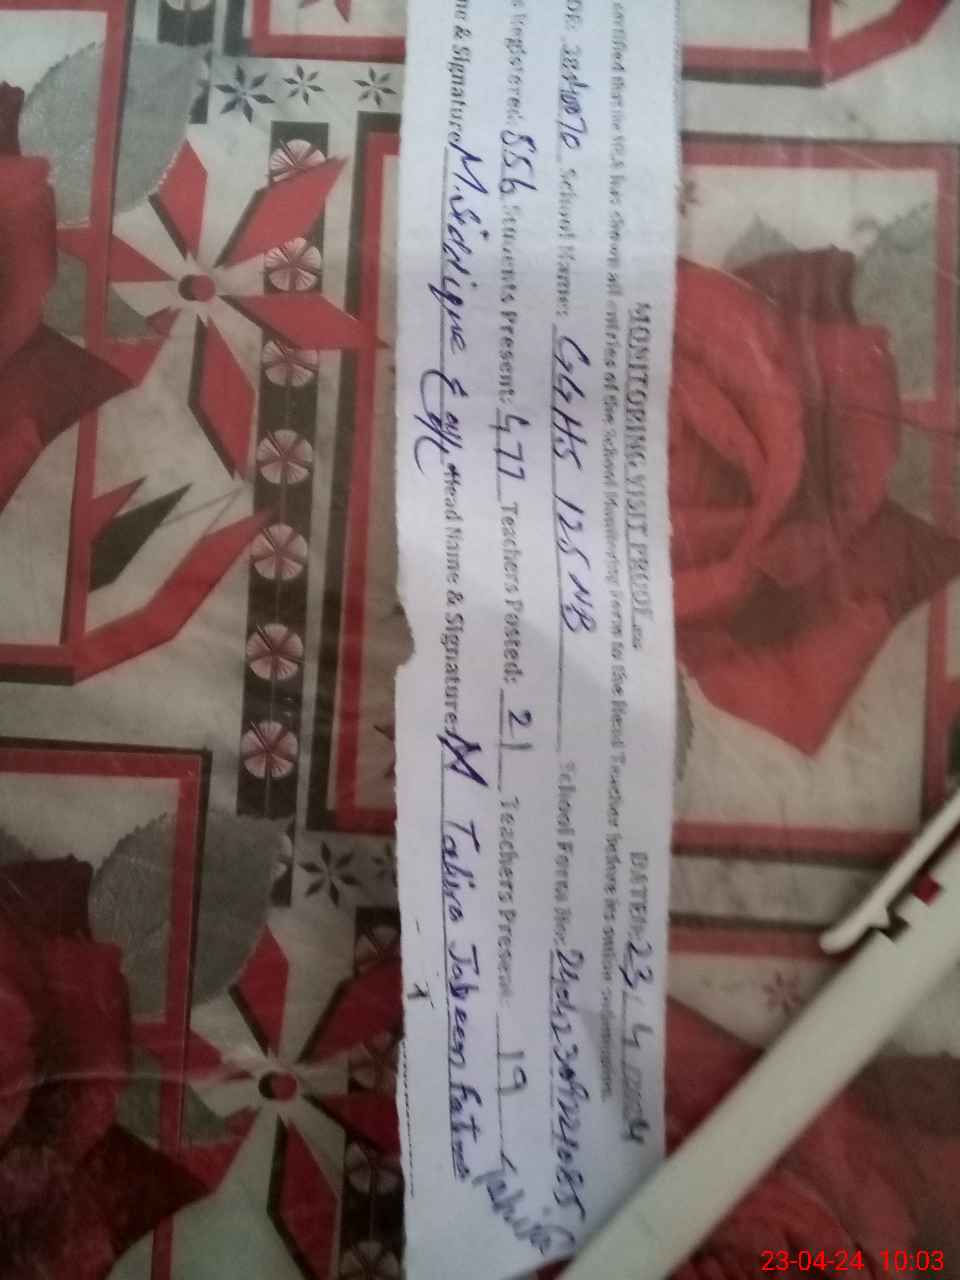 MONITORING VISIT PROOF DATED: 23 / 4 /2024
certified that the MEA has shown all entries of the School Monitoring Form to the Head Teacher before its online submission.
DE: 38540070 School Name: GGHS 125 NB School Form No:
s Registered: 556 Students Present: 477 Teachers Posted: 21 Teachers Present: 19
me & Signature: M. Siddique Head Name & Signature: M Tahira Jabeen
23-04-24 10:03